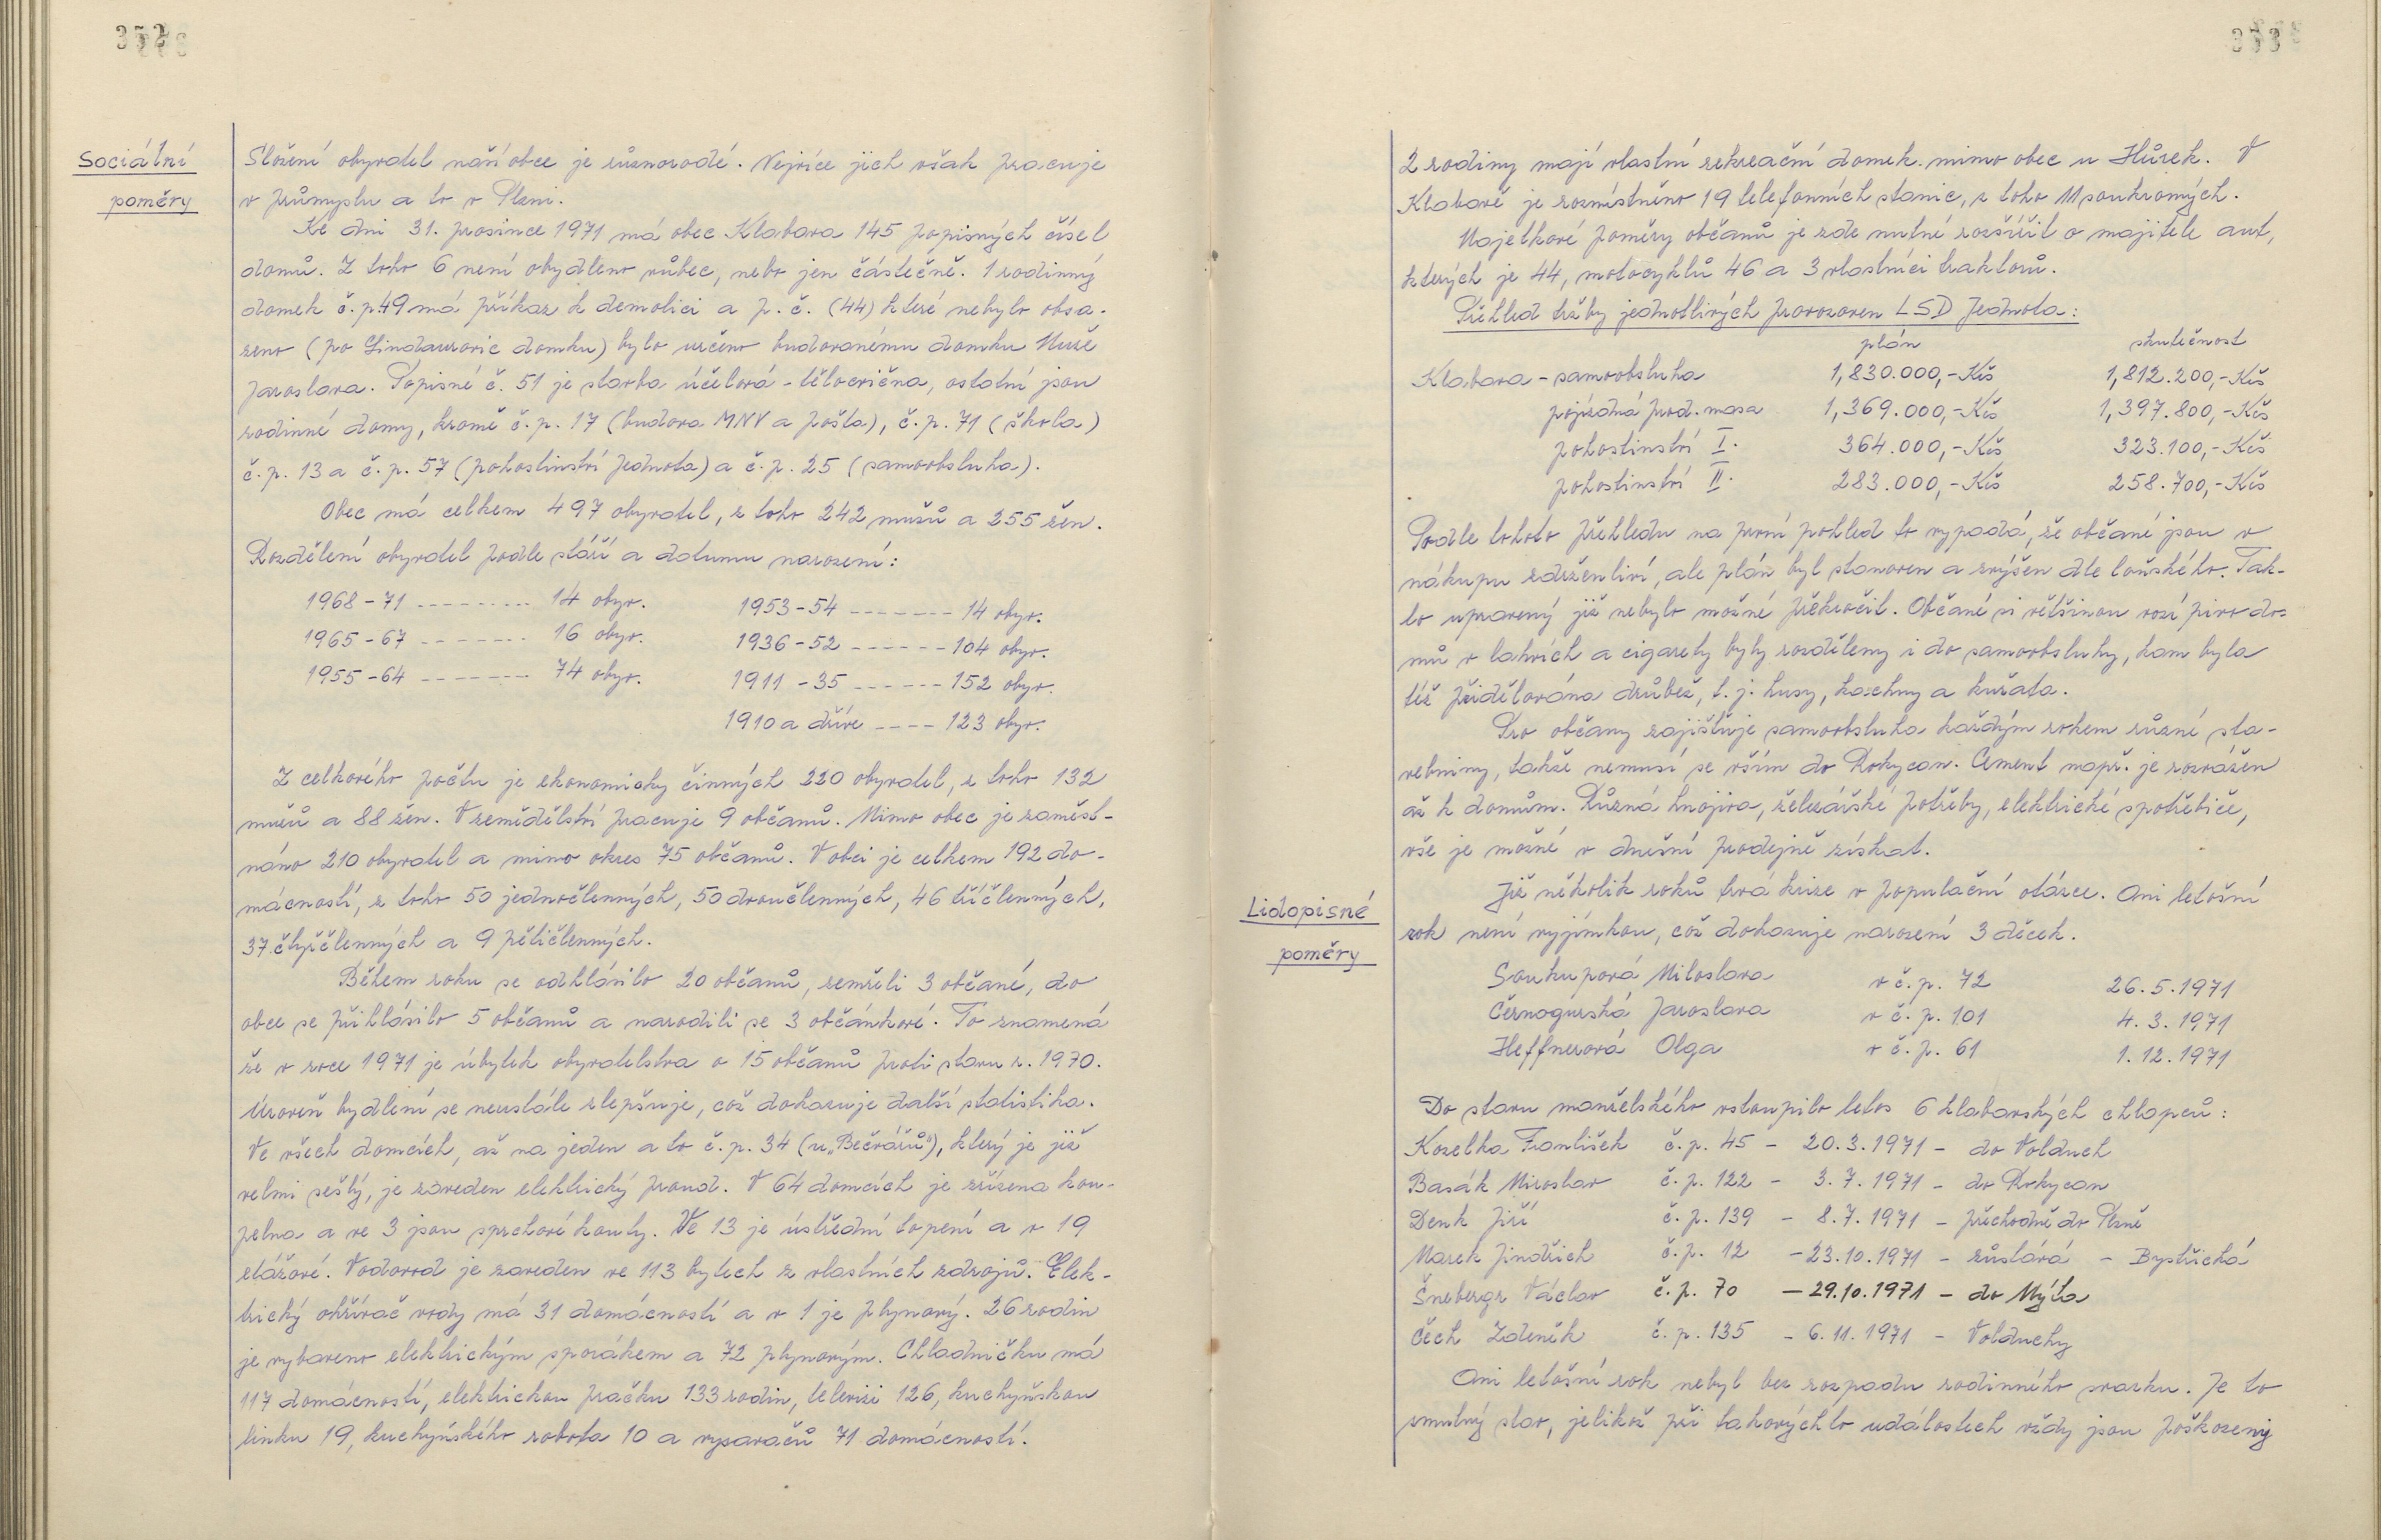 372
Sociální
poměry
Složení obyvatel naší obce je různorodé. Nejvíce jich však pracuje
v průmyslu a to v Plzni.
Ke dni 31. prosince 1971 má obec Klabava 145 popisných čísel
domů. Z toho 6 není obydleno vůbec, nebo jen částečně. 1 rodinný
domek č.p.49 má příkaz k demolici a p.č. (44) které nebylo obsa-
zeno (po domku) bylo určeno budovanému domku
Jaroslava. Popisné č. 51 je stavba účelová - tělocvična, ostatní jsou
rodinné domy, kromě č.p. 17 (budova MNV a pošta), č.p. 71 (škola)
č.p. 13 a č.p. 57 (pohostinství Jednota) a č.p. 25 (samoobsluha).
Obec má celkem 497 obyvatel, z toho 242 mužů a 255 žen.
Rozdělení obyvatel podle stáří a datumu narození:
1968-71 --------- 14 obyv.
1965-67 -------- 16 obyv.
1955-64 -------- 74 obyv.
1953-54 ------- 14 obyv.
1936-52 ------ 104 obyv.
1911-35 ------ 152 obyv.
1910 a dříve ---- 123 obyv.
Z celkového počtu je ekonomicky činných 220 obyvatel, z toho 132
mužů a 88 žen. V zemědělství pracuje 9 občanů. Mimo obec je zaměst-
náno 210 obyvatel a mimo okres 75 občanů. V obci je celkem 192 do-
mácností, z toho 50 jednočlenných, 50 dvoučlenných, 46 tříčlenných,
37 čtyřčlenných a 9 pětičlenných.
Během roku se odhlásilo 20 občanů, zemřeli 3 občané, do
obce se přihlásilo 5 občanů a narodili se 3 občánkové. To znamená
že v roce 1971 je úbytek obyvatelstva o 15 občanů proti stavu r. 1970.
Úroveň bydlení se neustále zlepšuje, což dokazuje další statistika.
Ve všech domcích, až na jeden a to č.p. 34 (u „Bečvářů"), který je již
velmi sešlý, je zaveden elektrický proud. V 64 domcích je zřízena kou-
pelna a ve 3 jsou sprchové kouty. Ve 13 je ústřední topení a v 19
etážové. Vodovod je zaveden ve 113 bytech z vlastních zdrojů. Elek-
trický ohřívač vody má 31 domácností a v 1 je plynový. 26 rodin
je vybaveno elektrickým sporákem a 72 plynovým. Chladničku má
117 domácností, elektrickou pračku 133 rodin, televizi 126, kuchyňskou
linku 19, kuchyňského robota 10 a vysavačů 71 domácností.
373
2 rodiny mají vlastní rekreační domek mimo obec u Hůrek. V
Klabavě je rozmístněno 19 telefonních stanic, z toho 11 soukromých.
Majetkové poměry občanů je zde nutné rozšířit o majitele aut,
kterých je 44, motocyklů 46 a 3 vlastníci traktorů.
Přehled tržby jednotlivých provozoven LSD Jednota:
plán skutečnost
Klabava - samoobsluha 1,830.000,- Kčs 1,812.200,- Kčs
pojízdná prod. masa 1,369.000,- Kčs 1,397.800,- Kčs
pohostinství I. 364.000,- Kčs 323.100,- Kčs
pohostinství II. 283.000,- Kčs 258.700,- Kčs
Podle tohoto přehledu na první pohled to vypadá, že občané jsou v
nákupu zdrženliví, ale plán byl stanoven a zvýšen dle loňského. Tak-
to upravený již nebylo možné překročit. Občané si většinou vozí pivo do-
mů v lahvích a cigarety byly rozděleny i do samoobsluhy, kam byla
též přidělována drůbež, t.j. husy, kachny a kuřata.
Pro občany zajišťuje samoobsluha každým rokem různé sta-
vebniny, takže nemusí se vším do Rokycan. Cement např. je rozvážen
až k domům. Různá hnojiva, železářské potřeby, elektrické spotřebiče,
vše je možné v dnešní prodejně získat.
Lidopisné
poměry
Již několik roků trvá krize v populační otázce. Ani letošní
rok není vyjímkou, což dokazuje narození 3 děcek.
Soukupová Miloslava v č.p. 72 26.5.1971
Černogurská Jaroslava v č.p. 101 4.3.1971
Heffnerová Olga v č.p. 61 1.12.1971
Do stavu manželského vstoupilo letos 6 klabavských chlapců:
Kozelka František č.p. 45 - 20.3.1971 - do Volduch
Basák Miroslav č.p. 122 - 3.7.1971 - do Rokycan
Denk Jiří č.p. 139 - 8.7.1971 - přechodně do Plzně
Marek Jindřich č.p. 12 - 23.10.1971 - zůstává - Bystřická
Šnebergr Václav č.p. 70 - 29.10.1971 - do Mýta
Čech Zdeněk č.p. 135 - 6.11.1971 - Volduchy
Ani letošní rok nebyl bez rozpadu rodinného svazku. Je to
smutný stav, jelikož při takovýchto událostech vždy jsou poškozeny